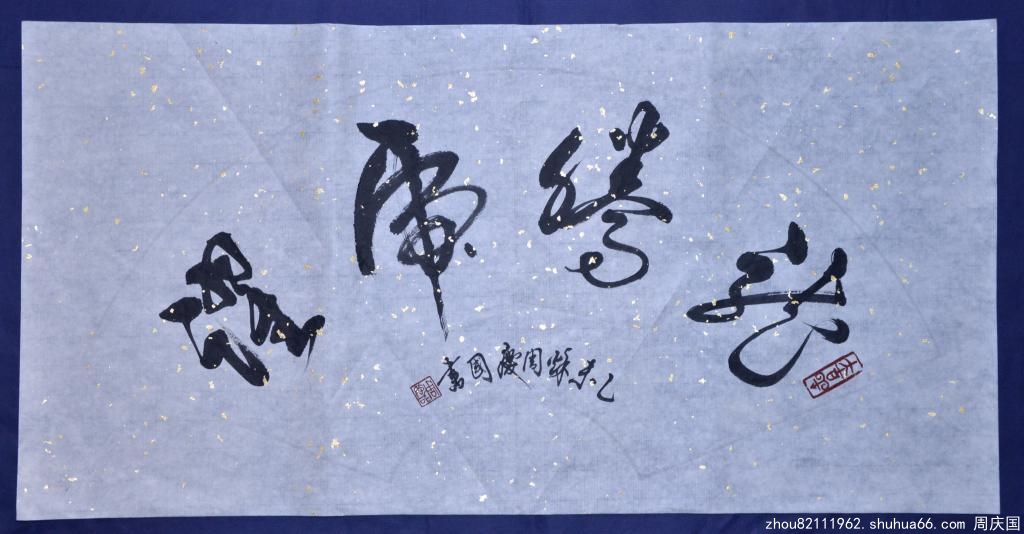 龙腾虎跃
乙未 周慶國書
zhou82111962.shuhua66.com 周庆国